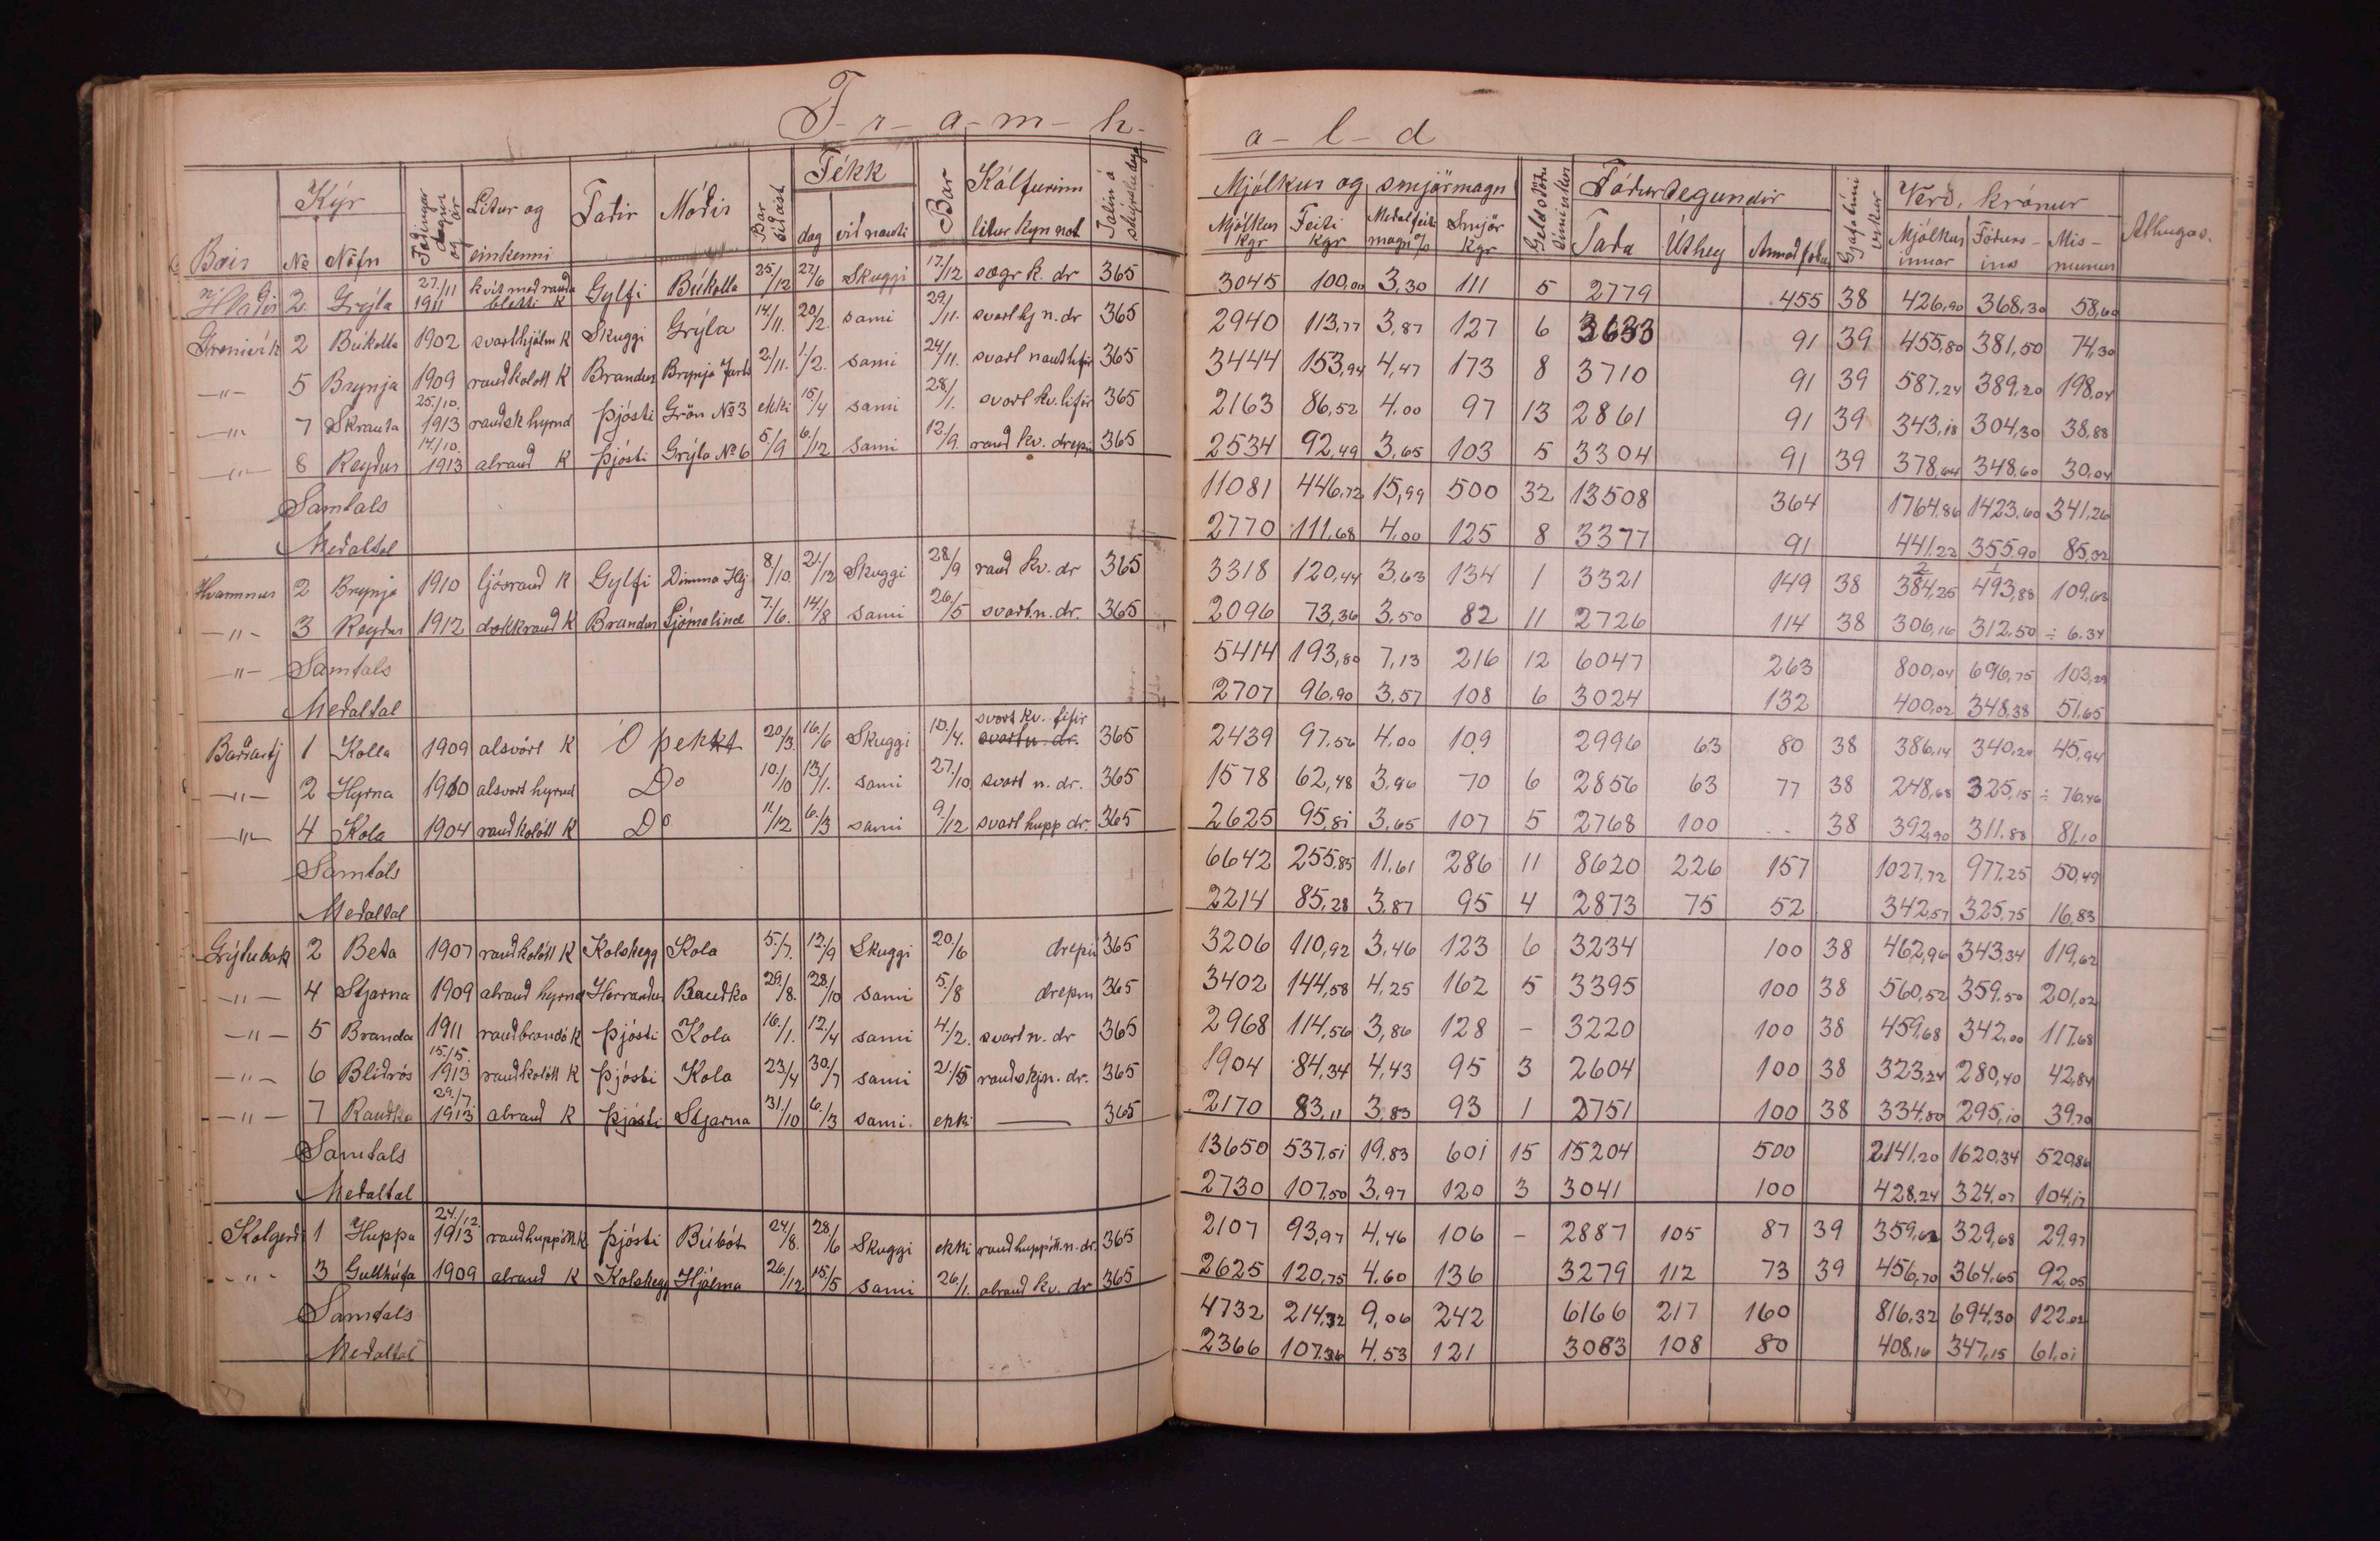 F-r-a-m-h-a-l-d
Bæir | Kýr | Fæðingar dagur og ár | Litur og einkenni | Faðir | Móðir | Bar síðast | Fékk | Bar | Kálfurinn | Talin á skýrslu daga | Mjólkur og smjörmagn | Geldstöðu tími vikur | Fóðurtegundir | Gjafatími vikur | Verð, krónur | Athugas.
No | Nöfn | dag | við nauti | litur kyn not | Mjólkur kgr | Feiti kgr | Meðalfeiti magn % | Smjör kgr | Taða | Úthey | Annað fóður | Mjólkur innar | Fóðurs- ins | Mis- munur
Hlaðir | 2. | Grýla | 27/11 1911 | hvít með rauða bletti k | Gylfi | Búkolla | 25/12 | 27/6 | Skuggi | 17/12 | sægr k. dr | 365 | 3045 | 100,00 | 3,30 | 111 | 5 | 2779 | 455 | 38 | 426,90 | 368,30 | 58,60
Grenivík | 2 | Búkolla | 1902 | svarthjálm k | Skuggi | Grýla | 14/11. | 20/2. | sami | 29/11. | svarthj n. dr | 365 | 2940 | 113,77 | 3,87 | 127 | 6 | 3633 | 91 | 39 | 455,80 | 381,50 | 74,30
-"- | 5 | Brynja | 1909 | rauðkolótt k | Brandur | Brynja Jarls | 2/11. | 1/2. | sami | 24/11. | svart naut lifir | 365 | 3444 | 153,94 | 4,47 | 173 | 8 | 3710 | 91 | 39 | 587,24 | 389,20 | 198,04
-"- | 7 | Skrauta | 25/10. 1913 | rauðsk hyrnd | Þjósti | Grön No 3 | ekki | 15/4 | sami | 28/1. | svart kv. lifir | 365 | 2163 | 86,52 | 4.00 | 97 | 13 | 2861 | 91 | 39 | 343,18 | 304,30 | 38,88
-"- | 8 | Reyður | 14/10. 1913 | alrauð k | Þjósti | Grýla No 6 | 5/9 | 6/12 | sami | 12/9. | rauð kv. drepin | 365 | 2534 | 92,49 | 3,65 | 103 | 5 | 3304 | 91 | 39 | 378,64 | 348,60 | 30,04
Samtals | 11081 | 446,72 | 15,99 | 500 | 32 | 13508 | 364 | 1764,86 | 1423,60 | 341,26
Meðaltal | 2770 | 111,68 | 4.00 | 125 | 8 | 3377 | 91 | 441,22 | 355,90 | 85,32
Hvammur | 2 | Brynja | 1910 | ljósrauð k | Gylfi | Dimma Hj. | 8/10. | 21/12 | Skuggi | 28/9 | rauð kv. dr | 365 | 3318 | 120,44 | 3,63 | 134 | 1 | 3321 | 149 | 38 | 2 384,25 | 1 493,88 | 109,63
-"- | 3 | Reyður | 1912 | dökkrauð k | Brandur | Ljómalind | 7/6. | 14/8 | sami | 26/5 | svart n. dr. | 365 | 2096 | 73,36 | 3,50 | 82 | 11 | 2726 | 114 | 38 | 306,16 | 312,50 | ÷ 6.34
-"- | Samtals | 5414 | 193,80 | 7,13 | 216 | 12 | 6047 | 263 | 800,04 | 696,75 | 103,29
Meðaltal | 2707 | 96,90 | 3,57 | 108 | 6 | 3024 | 132 | 400,02 | 348,38 | 51,65
1 | Kolla | 1909 | alsvört k | Óþekkt | 20/3. | 16/6 | Skuggi | 10/4. | svart kv. lifir svart n. dr. | 365 | 2439 | 97.56 | 4.00 | 109 | 2996 | 63 | 80 | 38 | 386,14 | 340,20 | 45,94
-"- | 2 | Hyrna | 1910 | alsvört hyrnd | Do | 10/10 | 13/1. | sami | 27/10. | svart n. dr. | 365 | 1578 | 62,48 | 3,96 | 70 | 6 | 2856 | 63 | 77 | 38 | 248,68 | 325,15 | ÷ 76,46
-"- | 4 | Kola | 1904 | rauðkolótt k | Do | 11/12 | 6/3 | sami | 9/12 | svart hupp dr. | 365 | 2625 | 95,81 | 3,65 | 107 | 5 | 2768 | 100 | .. | 38 | 392,90 | 311.88 | 81,10
Samtals | 6642 | 255,85 | 11.61 | 286 | 11 | 8620 | 226 | 157 | 1027,72 | 977,25 | 50,49
Meðaltal | 2214 | 85,28 | 3.87 | 95 | 4 | 2873 | 75 | 52 | 342,57 | 325,75 | 16,83
Grýtubak | 2 | Beta | 1907 | rauðkolótt k | Kolskegg | Kola | 5/7. | 12/9 | Skuggi | 20/6 | drepin | 365 | 3206 | 110,92 | 3,46 | 123 | 6 | 3234 | 100 | 38 | 462,96 | 343,34 | 119,62
-"- | 4 | Stjarna | 1909 | alrauð hyrnd | Herrauður | Rauðka | 29/8. | 28/10 | sami | 5/8 | drepin | 365 | 3402 | 144,58 | 4.25 | 162 | 5 | 3395 | 100 | 38 | 560,52 | 359.50 | 201,02
-"- | 5 | Branda | 1911 | rauðbrandó k | Þjósti | Kola | 16/1. | 12/4 | sami | 4/2. | svart n. dr | 365 | 2968 | 114,56 | 3,86 | 128 | - | 3220 | 100 | 38 | 459,68 | 342,00 | 117,68
-"- | 6 | Blíðrós | 15/5. 1913 | rauðkolótt k | Þjósti | Kola | 23/4 | 30/7 | sami | 21/5 | rauðskj n. dr. | 365 | 1904 | 84,34 | 4,43 | 95 | 3 | 2604 | 100 | 38 | 323,24 | 280,40 | 42,84
-"- | 7 | Rauðka | 29/7. 1913 | alrauð k | Þjósti | Stjarna | 31/10 | 6/3 | sami. | ekki | — | 365 | 2170 | 83,11 | 3,83 | 93 | 1 | 2751 | 100 | 38 | 334,80 | 295,10 | 39,70
Samtals | 13650 | 537,51 | 19.83 | 601 | 15 | 15204 | 500 | 2141,20 | 1620,34 | 520,86
Meðaltal | 2730 | 107,50 | 3,97 | 120 | 3 | 3041 | 100 | 428,24 | 324,07 | 104,17
Kolgerði | 1 | Huppa | 24/12. 1913 | rauðhuppótt k | Þjósti | Búbót | 24/8. | 28/6 | Skuggi | ekki | rauðhuppótt. n. dr. | 365 | 2107 | 93,97 | 4,46 | 106 | - | 2887 | 105 | 87 | 39 | 359,62 | 329,68 | 29,97
-"- | 3 | Gullhúfa | 1909 | alrauð k | Kolskegg | Hjálma | 26/12 | 15/5 | sami | 26/1. | alrauð kv. dr | 365 | 2625 | 120,75 | 4.60 | 136 | 3279 | 112 | 73 | 39 | 456,70 | 364,65 | 92,05
Samtals | 4732 | 214,32 | 9,06 | 242 | 6166 | 217 | 160 | 816,32 | 694,30 | 122,02
Meðaltal | 2366 | 107,36 | 4.53 | 121 | 3083 | 108 | 80 | 408,16 | 347,15 | 61,01